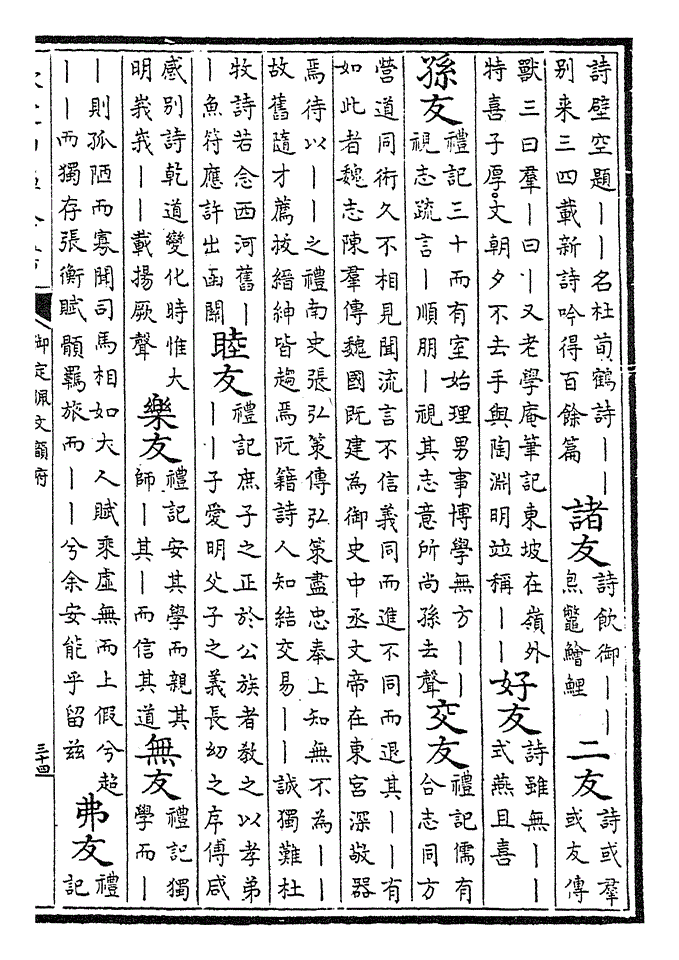 詩壁空題丨丨名杜荀鶴詩丨丨
别来三四載新詩吟得百餘篇
諸友
詩飲御丨丨
炰鼈鱠鯉
二友
詩或羣
或友傳
獸三曰羣丨曰丨又老學庵筆記東坡在嶺外
特喜子厚文朝夕不去手與陶淵明竝稱丨丨
好友
詩雖無丨丨
式燕且喜
孫友
禮記三十而有室始理男事博學無方丨丨
視志疏言丨順朋丨視其志意所尚孫去聲
交友
禮記儒有
合志同方
營道同術久不相見聞流言不信義同而進不同而退其丨丨有
如此者魏志陳羣傳魏國既建為御史中丞文帝在東宮深敬器
焉待以丨丨之禮南史張弘策傳弘策盡忠奉上知無不為丨丨
故舊隨才薦拔縉紳皆趨焉阮籍詩人知結交易丨丨誠獨難杜
牧詩若念西河舊丨
丨魚符應許出函關
睦友
禮記庶子之正於公族者教之以孝弟
丨丨子愛明父子之義長幼之序傅咸
感别詩乾道變化時惟大
明峩峩丨丨載揚厥聲
樂友
禮記安其學而親其
師丨其丨而信其道
無友
禮記獨
學而丨
丨則孤陋而寡聞司馬相如大人賦乘虛無而上假兮超
丨丨而獨存張衡賦顝羈旅而丨丨兮余安能乎留兹
弗友
禮
記
御定佩文韻府
三十四